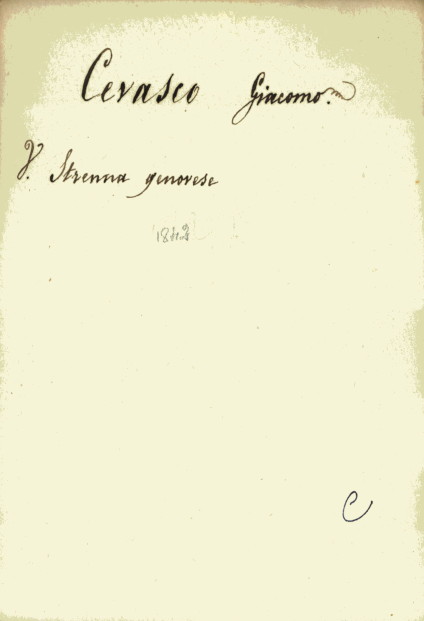 Cevasco Giacomo.
V. Strenna genovese
C